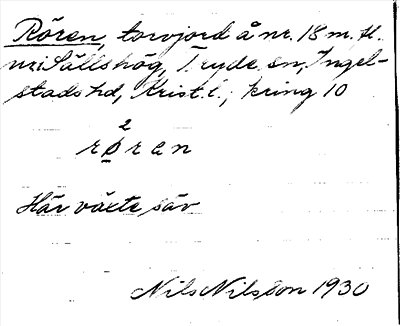 Rören, torvjord å nr. 18 m. fl.
i Sällshög, Tryde sn, Ingel-
stads hd, Krist. l.; kring 10
2
røren
Här växte säv
Nils Nilsson 1930